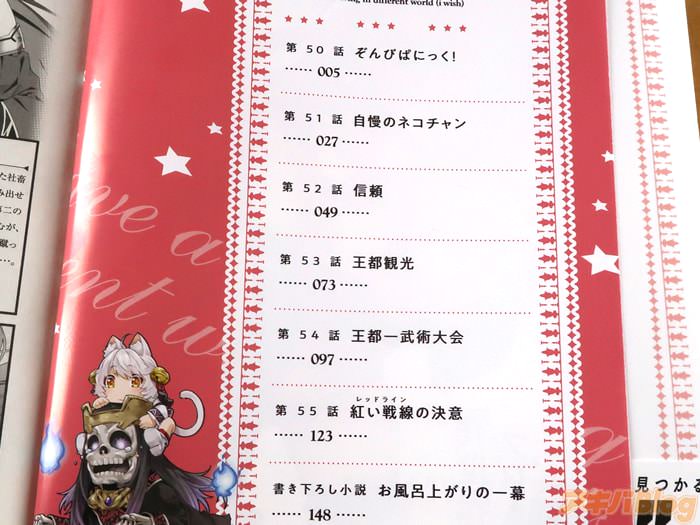 ing in different world (i wish)
第 50 話 ぞんびぱにっく!
…… 005 ……
第 51 話 自慢のネコチャン
…… 027 ……
第 52 話 信頼
…… 049 ……
第 53 話 王都観光
…… 073 ……
第 54 話 王都一武術大会
…… 097 ……
レッドライン
第 55 話 紅い戦線の決意
…… 123 ……
書き下ろし小説 お風呂上がりの一幕
…… 148 ……
た社畜
み出せ
第二の
むが、
蹴っ
…。
ve a
nt w
a
見つかる
アキバBlog